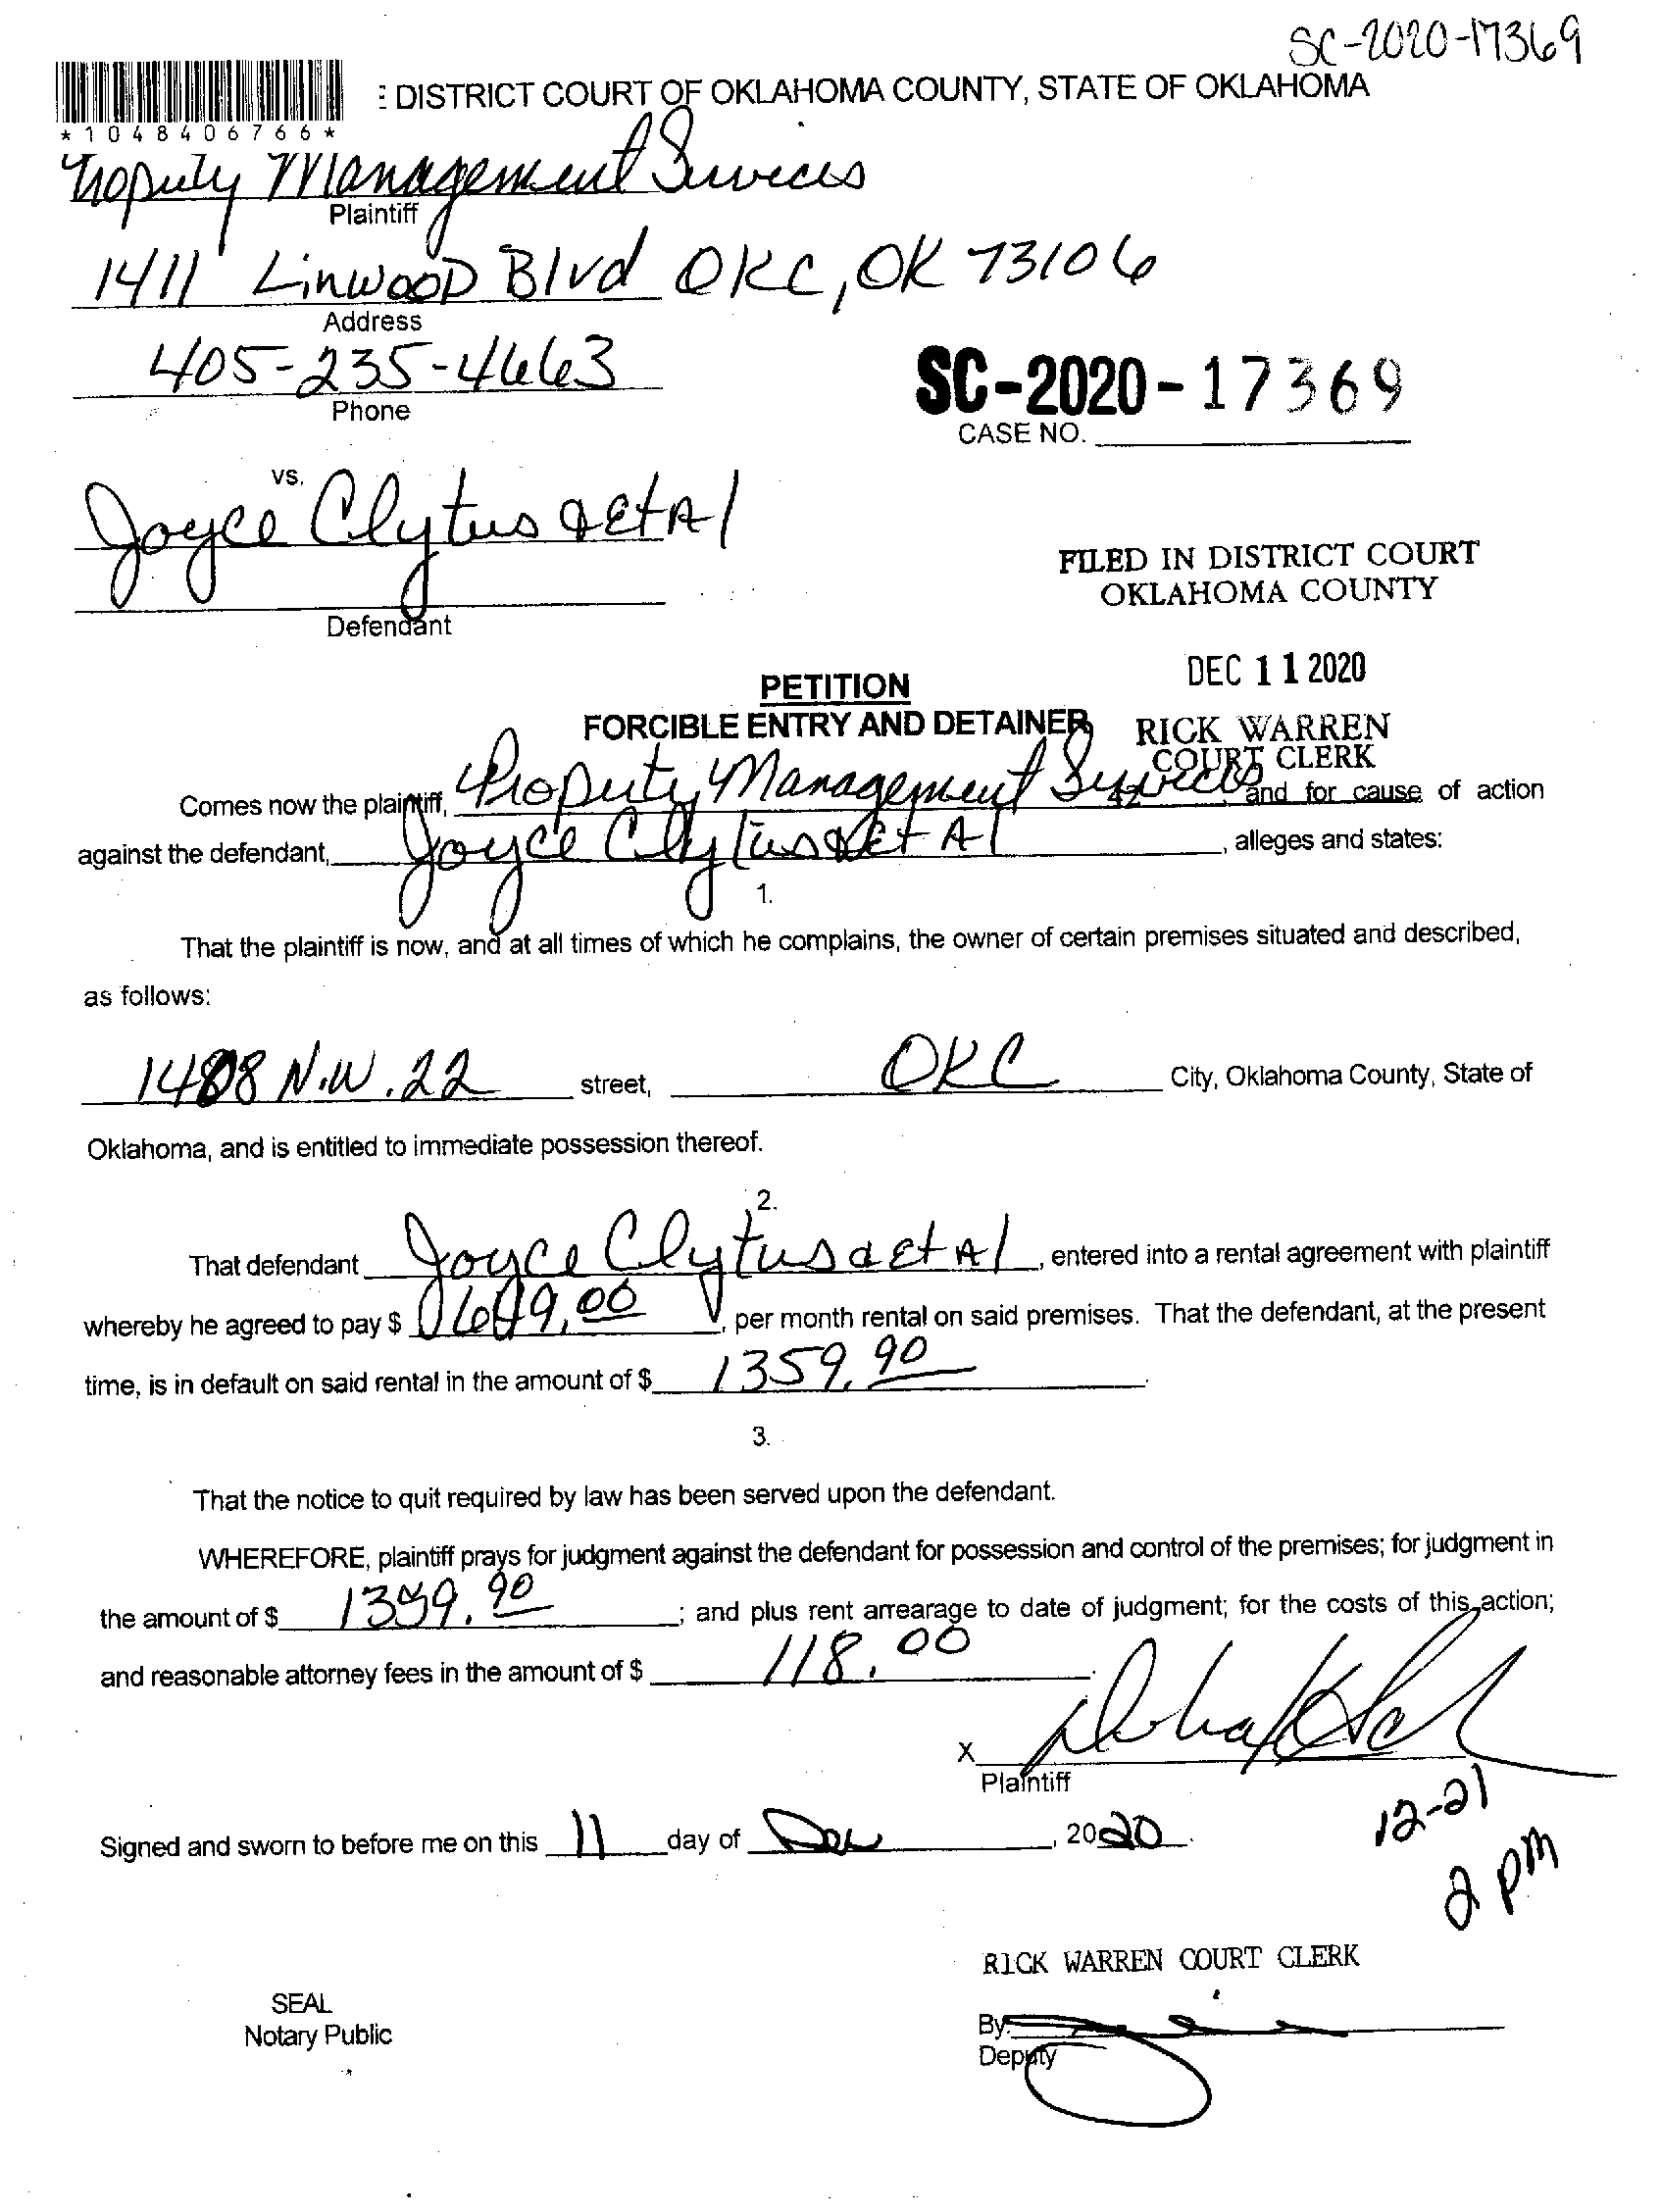 SC-2020-17369
: DISTRICT COURT OF OKLAHOMA COUNTY, STATE OF OKLAHOMA
*1048406766*
Property Management Services
Plaintiff
1411 Linwood Blvd OKC, OK 73106
Address
405-235-4663
Phone
SC-2020-17369
CASE NO.
vs.
Joyce Clytus & Et Al
Defendant
FILED IN DISTRICT COURT
OKLAHOMA COUNTY
DEC 11 2020
RICK WARREN
COURT CLERK
PETITION
FORCIBLE ENTRY AND DETAINER
Comes now the plaintiff, Property Management Services, and for cause of action
against the defendant, Joyce Clytus & Et Al, alleges and states:
1.
That the plaintiff is now, and at all times of which he complains, the owner of certain premises situated and described,
as follows:
N.W. 22 street, OKC City, Oklahoma County, State of
Oklahoma, and is entitled to immediate possession thereof.
2.
That defendant Joyce Clytus & Et Al, entered into a rental agreement with plaintiff
whereby he agreed to pay $ , per month rental on said premises. That the defendant, at the present
time, is in default on said rental in the amount of $ 1359.90.
3.
That the notice to quit required by law has been served upon the defendant.
WHEREFORE, plaintiff prays for judgment against the defendant for possession and control of the premises; for judgment in
the amount of $ 1359.90; and plus rent arrearage to date of judgment; for the costs of this action;
and reasonable attorney fees in the amount of $ 118.00.
X
Plaintiff
Signed and sworn to before me on this 11 day of Dec, 2020.
12-21
2 pm
RICK WARREN COURT CLERK
SEAL
Notary Public
By:
Deputy